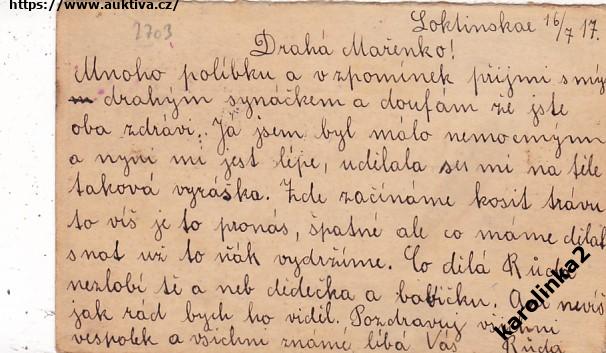 https://www.auktiva.cz/
2703
Loktinskae 16/7 17.
Drahá Mařenko!
Mnoho políbku a vzpomínek přijmi s mý
m drahým synáčkem a doufám že jste
oba zdrávi. Já jsem byl málo nemocným
a nyní mi jest lépe, udělala se mi na těle
taková vyráška. Zde začínáme kosit trávu
to víš je to pronás, špatné ale co máme dělat
snat už to ňák vydržíme. Co dělá Růda
nezlobí tě a neb dědečka a babičku. A nevíš
jak rád bych ho viděl. Pozdravuj
vespolek a všichni známé líbá Vás Růda
karolinka2